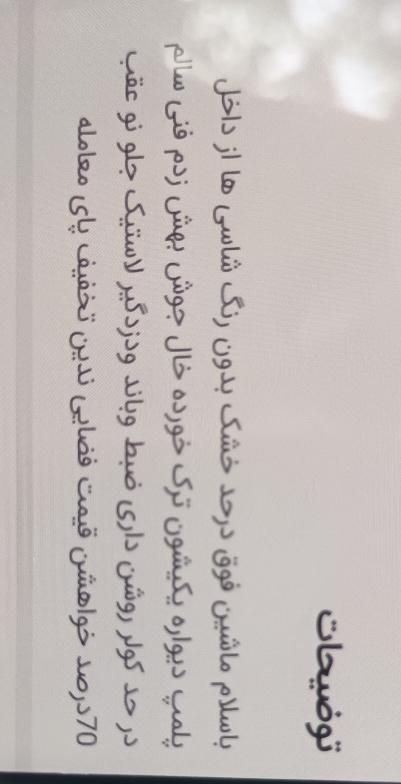 توضیحات
باسلام ماشین فوق درحد خشک بدون رنگ شاسی ها از داخل
پلمپ دیواره یکیشون ترک خورده خال جوش بهش زدم فنی سالم
در حد کولر روشن داری ضبط وباند ودزدگیر لاستیک جلو نو عقب
70درصد خواهشن قیمت فضایی ندین تخفیف پای معامله